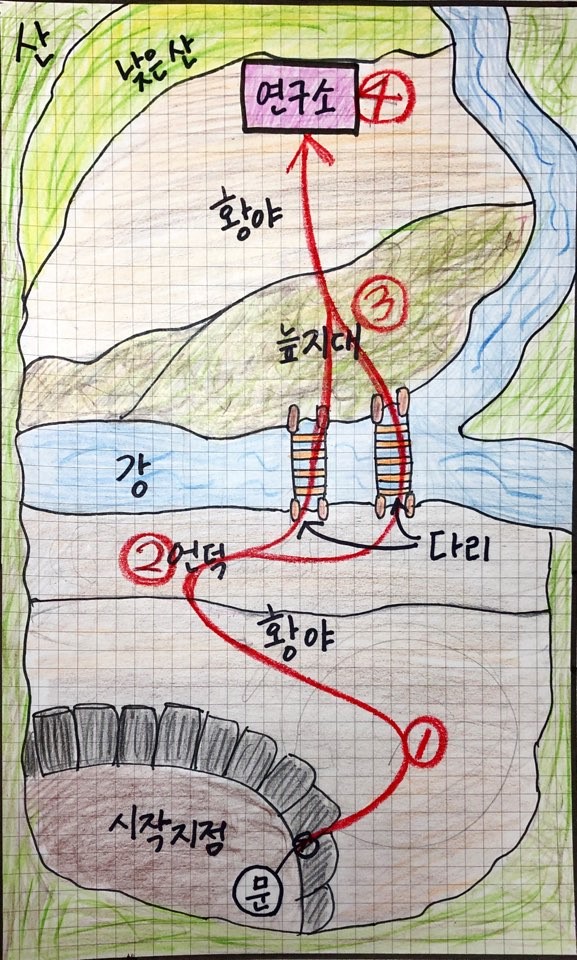 산
낮은산
연구소
4
황야
3
늪지대
강
2 언덕
다리
황야
1
시작지점
문